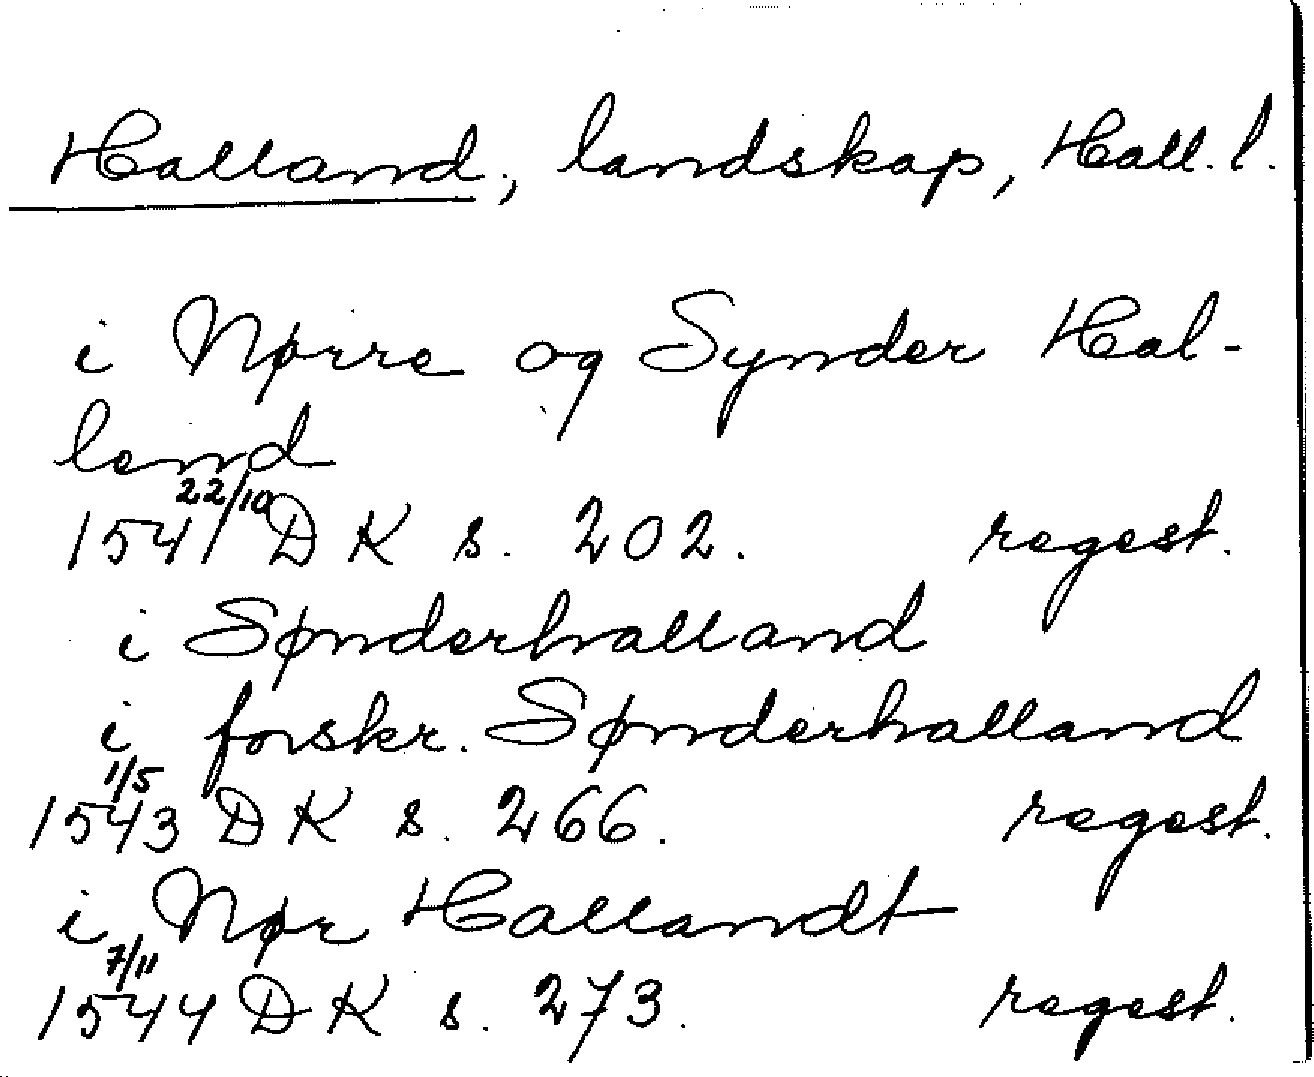 Halland, landskap, Hall. l.
i Nørre og Synder Hal-
land
1541 22/10 DK s. 202. regest.
i Sønderhalland
i forskr. Sønderhalland
1543 1/5 DK s. 266. regest.
i Nør Hallandt
1544 7/11 DK s. 273. regest.